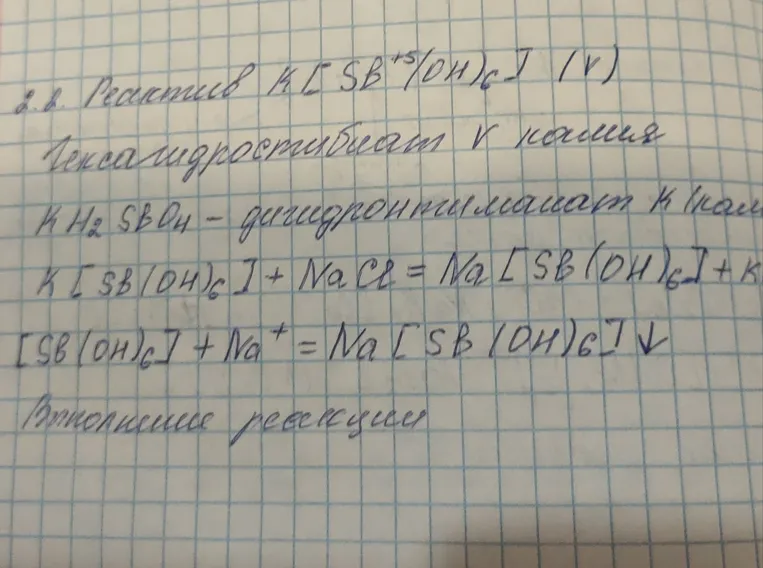 2.2. Реактив K[SB⁺⁵(OH)₆] (V)
Гексагидростибиат V калия
KH₂SBO₄ - дигидронтиманат K (кал
K[SB(OH)₆] + NaCl = Na[SB(OH)₆] + K
[SB(OH)₆] + Na⁺ = Na[SB(OH)₆]↓
Выполнение реакции